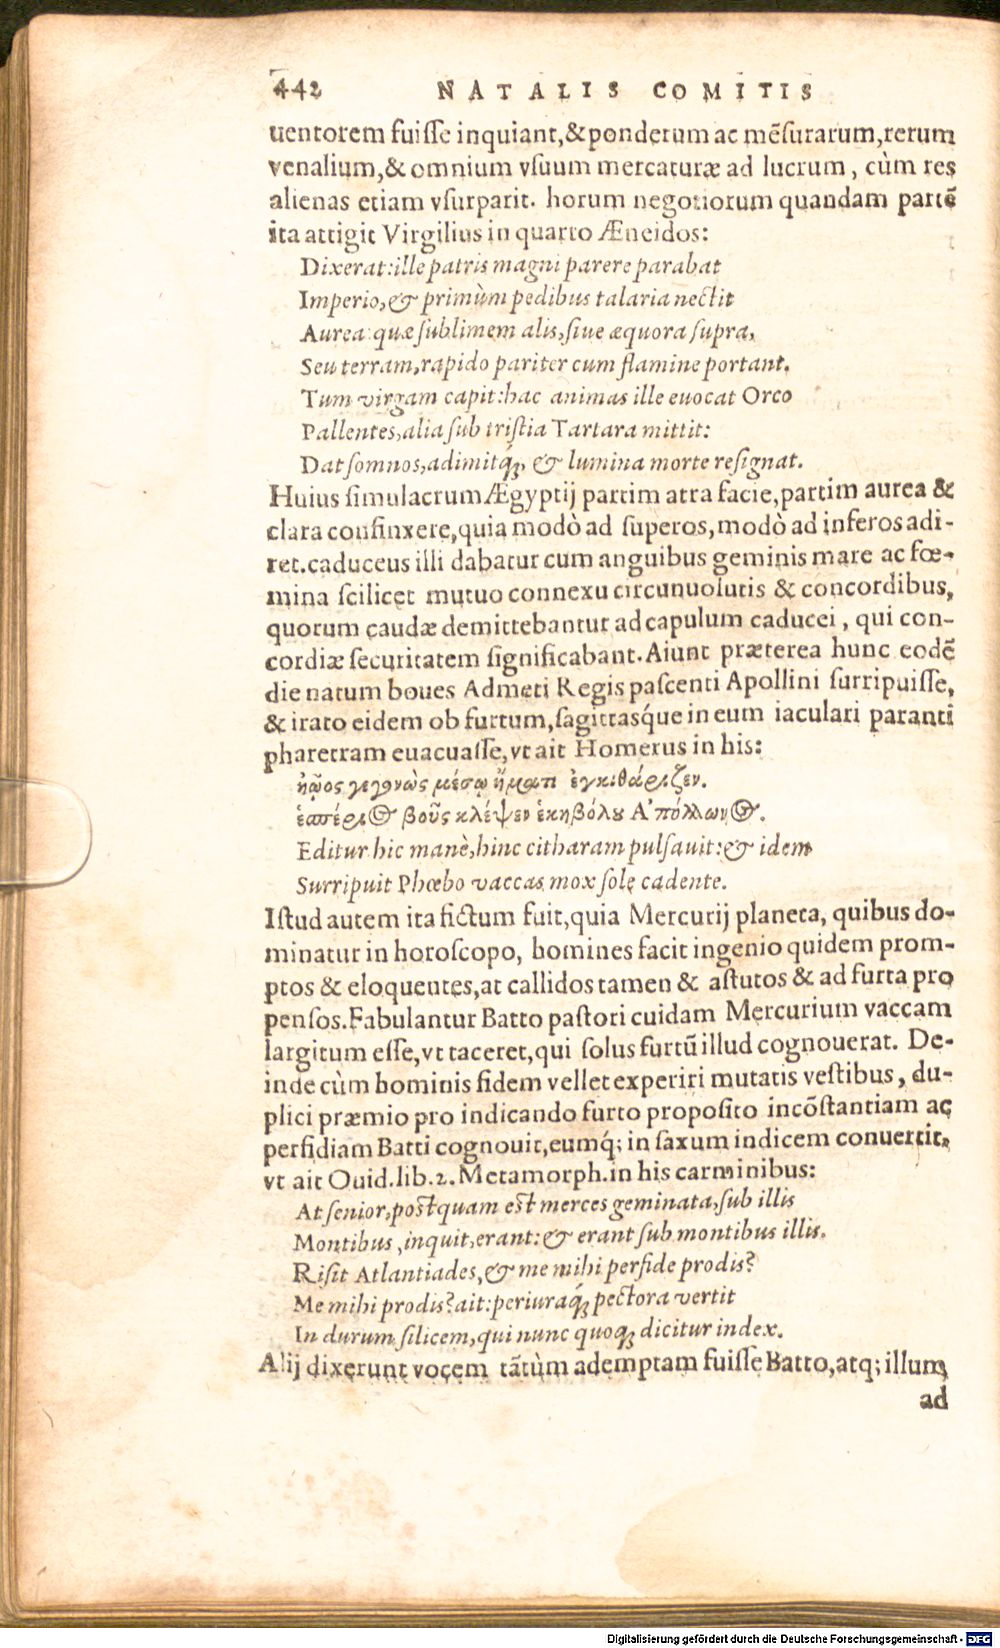 442 NATALIS COMITIS
uentorem fuiſſe inquiant,&ponderum ac mēſurarum,rerum
venalium,& omnium vſuum mercaturæ ad lucrum, cùm res
alienas etiam vſurparit. horum negotiorum quandam partē
ita attigit Virgilius in quarto Æneidos:
Dixerat:ille patris magni parere parabat
Imperio,& primùm pedibus talaria nectit
Aurea:quæ ſublimem alis,ſiue æquora ſupra,
Seu terram,rapido pariter cum flamine portant.
Tum virgam capit:hac animas ille euocat Orco
Pallentes,alia ſub triſtia Tartara mittit:
Dat ſomnos,adimitq́;, & lumina morte reſignat.
Huius ſimulacrum Ægyptij partim atra facie,partim aurea &
clara confinxere,quia modò ad ſuperos,modò ad inferos adi-
ret.caduceus illi dabatur cum anguibus geminis mare ac fœ-
mina ſcilicet mutuo connexu circunuolutis & concordibus,
quorum caudæ demittebantur ad capulum caducei, qui con-
cordiæ ſecuritatem ſignificabant.Aiunt præterea hunc eodē
die natum boues Admeti Regis paſcenti Apollini ſurripuiſſe,
& irato eidem ob furtum,ſagittasq́ue in eum iaculari paranti
pharetram euacuaſſe,vt ait Homerus in his:
ἠῷος γεγονὼς μέσῳ ἤματι ἐγκιθάριζεν.
ἑσπέριος βοῦς κλέψεν ἑκηβόλου Ἀπόλλωνος.
Editur hic manè,hinc citharam pulſauit:& idem
Surripuit Phœbo vaccas mox ſole cadente.
Iſtud autem ita fictum fuit,quia Mercurij planeta, quibus do-
minatur in horoſcopo, homines facit ingenio quidem prom-
ptos & eloquentes,at callidos tamen & aſtutos & ad furta pro
penſos.Fabulantur Batto paſtori cuidam Mercurium vaccam
largitum eſſe,vt taceret,qui ſolus furtū illud cognouerat. De-
inde cùm hominis fidem vellet experiri mutatis veſtibus, du-
plici præmio pro indicando furto propoſito incōſtantiam ac
perfidiam Batti cognouit,eumq́; in ſaxum indicem conuertit,
vt ait Ouid.lib.2.Metamorph.in his carminibus:
At ſenior,poſtquam eſt merces geminata,ſub illis
Montibus,inquit,erant:& erant ſub montibus illis.
Riſit Atlantiades,& me mihi perfide prodis?
Me mihi prodis?ait:periuraq́; pectora vertit
In durum ſilicem,qui nunc quoq; dicitur index.
Alij dixerunt vocem tātùm ademptam fuiſſe Batto,atq; illum
ad
Digitalisierung gefördert durch die Deutsche Forschungsgemeinschaft - DFG